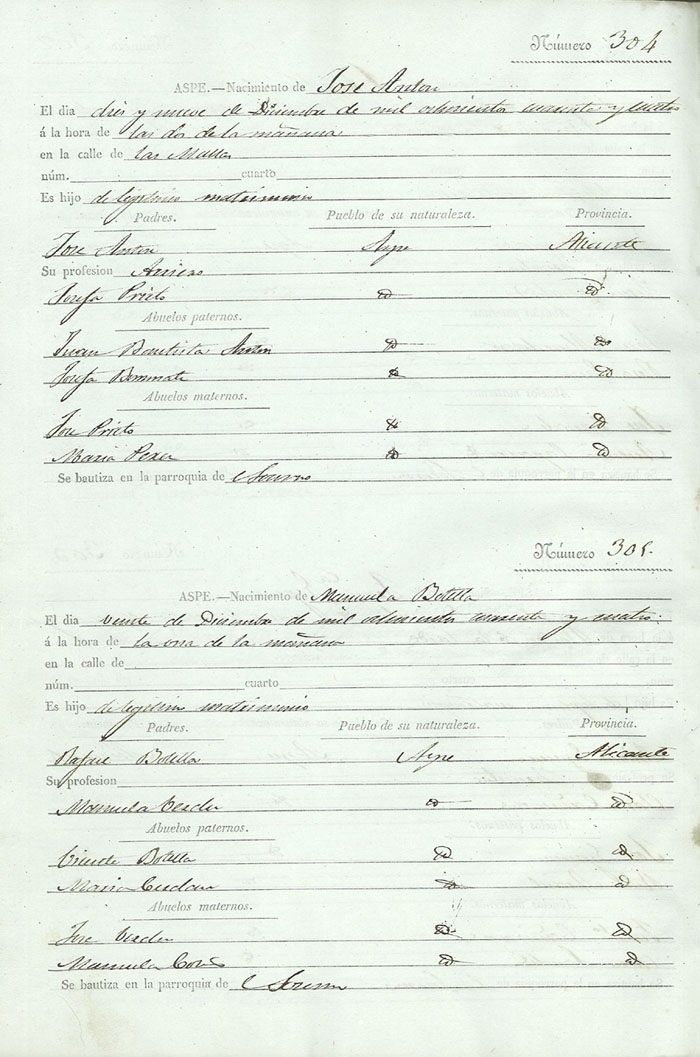 Número 304
ASPE.—Nacimiento de Jose Anton
El dia diez y nueve de Diciembre de mil ochocientos cuarenta y cuatro
á la hora de las dos de la mañana
en la calle de las
núm. cuarto
Es hijo de legitimo matrimonio
Padres. Pueblo de su naturaleza. Provincia.
Jose Anton Aspe Alicante
Su profesion Arriero
Josefa Prieto id id
Abuelos paternos.
Juan Bautista Anton id id
Josefa id id
Abuelos maternos.
Jose Prieto id id
Maria Perez id id
Se bautiza en la parroquia de
Número 305.
ASPE.—Nacimiento de Manuela Botella
El dia veinte de Diciembre de mil ochocientos cuarenta y cuatro
á la hora de la una de la mañana
en la calle de
núm. cuarto
Es hijo de legitimo matrimonio
Padres. Pueblo de su naturaleza. Provincia.
Rafael Botella Aspe Alicante
Su profesion
Manuela id id
Abuelos paternos.
Vicente Botella id id
Maria id id
Abuelos maternos.
Jose id id
Manuela id id
Se bautiza en la parroquia de